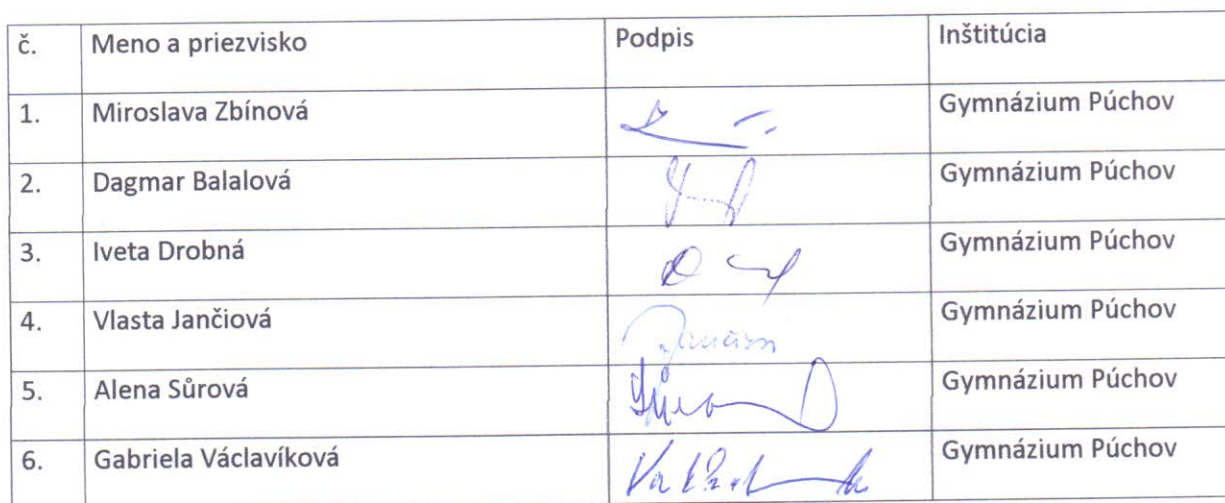 č. Meno a priezvisko Podpis Inštitúcia
1. Miroslava Zbínová Gymnázium Púchov
2. Dagmar Balalová Gymnázium Púchov
3. Iveta Drobná Gymnázium Púchov
4. Vlasta Jančiová Gymnázium Púchov
5. Alena Sůrová Gymnázium Púchov
6. Gabriela Václavíková Gymnázium Púchov